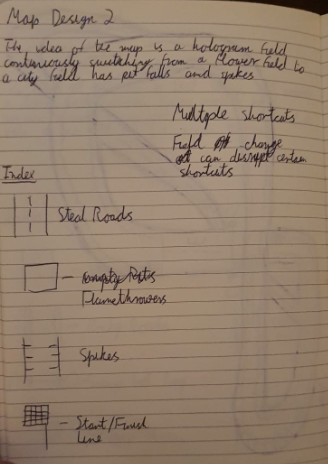 Map Design 2
The idea of the map is a hologram field
continuously switching from a flower field to
a city field has pit falls and spikes
Multiple shortcuts
Field change
can disrupt certain
shortcuts
Index
Steal Roads
Flamethrowers
Spikes
Start/Finish
Line